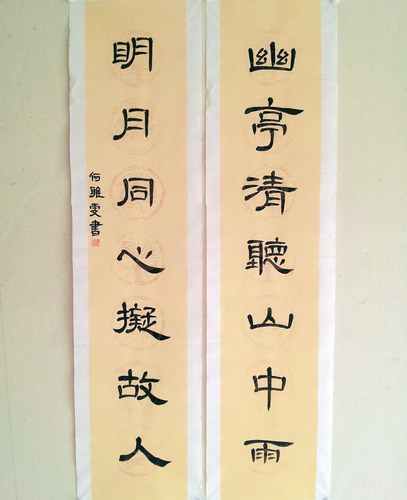 幽亭清聽山中雨
明月同心擬故人
何雅雯書